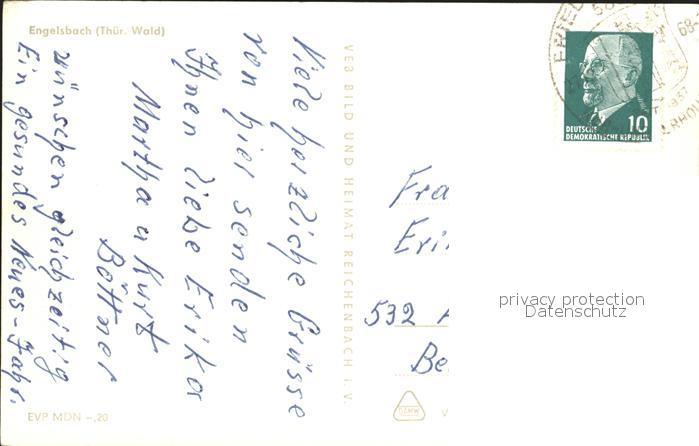 Engelsbach (Thür. Wald)
Viele herzliche Grüsse
von hier senden
Ihnen liebe Erika
Martha u Kurt
Böttner
wünschen gleichzeitig
Ein gesundes Neues-Jahr.
EVP MDN -,20
VEB BILD UND HEIMAT REICHENBACH I. V.
DEUTSCHE
DEMOKRATISCHE REPUBLIK
10
Fra
Eri
532
Be
V
privacy protection
Datenschutz